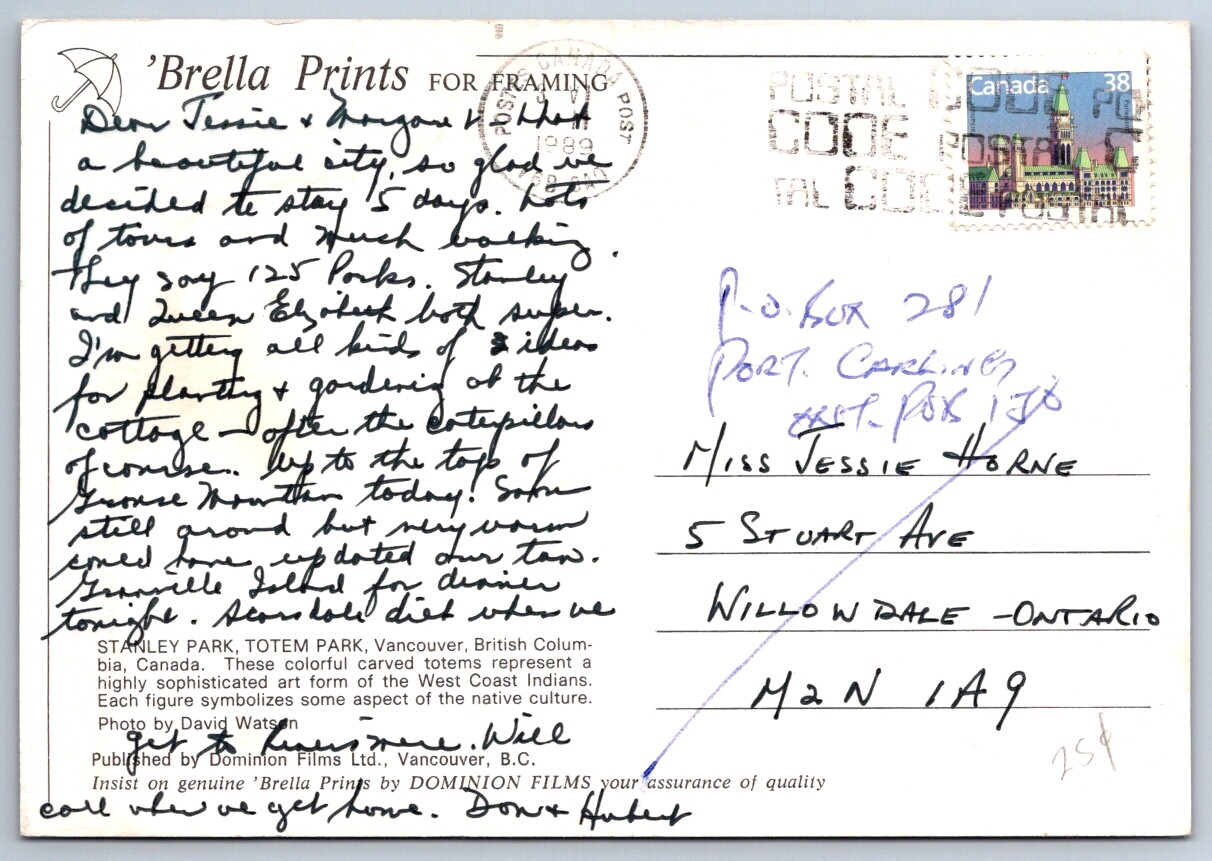 'Brella Prints FOR FRAMING
Dear Jessie & Morgan - What
a beautiful city, so glad we
decided to stay 5 days. Lots
of tours and much walking.
They say 125 Parks. Stanley
and Queen Elizabeth both super.
I'm getting all kinds of ideas
for planting & gardening at the
cottage - after the caterpillars
of course. Up to the top of
Grouse Mountain today. Snow
still around but very warm
could have updated our tan.
Granville Island for dinner
tonight. Scarsdale diet when we
STANLEY PARK, TOTEM PARK, Vancouver, British Colum-
bia, Canada. These colorful carved totems represent a
highly sophisticated art form of the West Coast Indians.
Each figure symbolizes some aspect of the native culture.
Photo by David Watson
get to
Will
Published by Dominion Films Ltd., Vancouver, B.C.
Insist on genuine 'Brella Prints by DOMINION FILMS your assurance of quality
call when we get home. Don & Hubert
CANADA POST
1989
POSTAL CODE
CODE POSTAL
Canada 38
P.O. BOX 281
PORT. CARLING
ONT. P0B 1J0
MISS JESSIE HORNE
5 STUART AVE
WILLOWDALE - ONTARIO
M2N 1A9
25¢